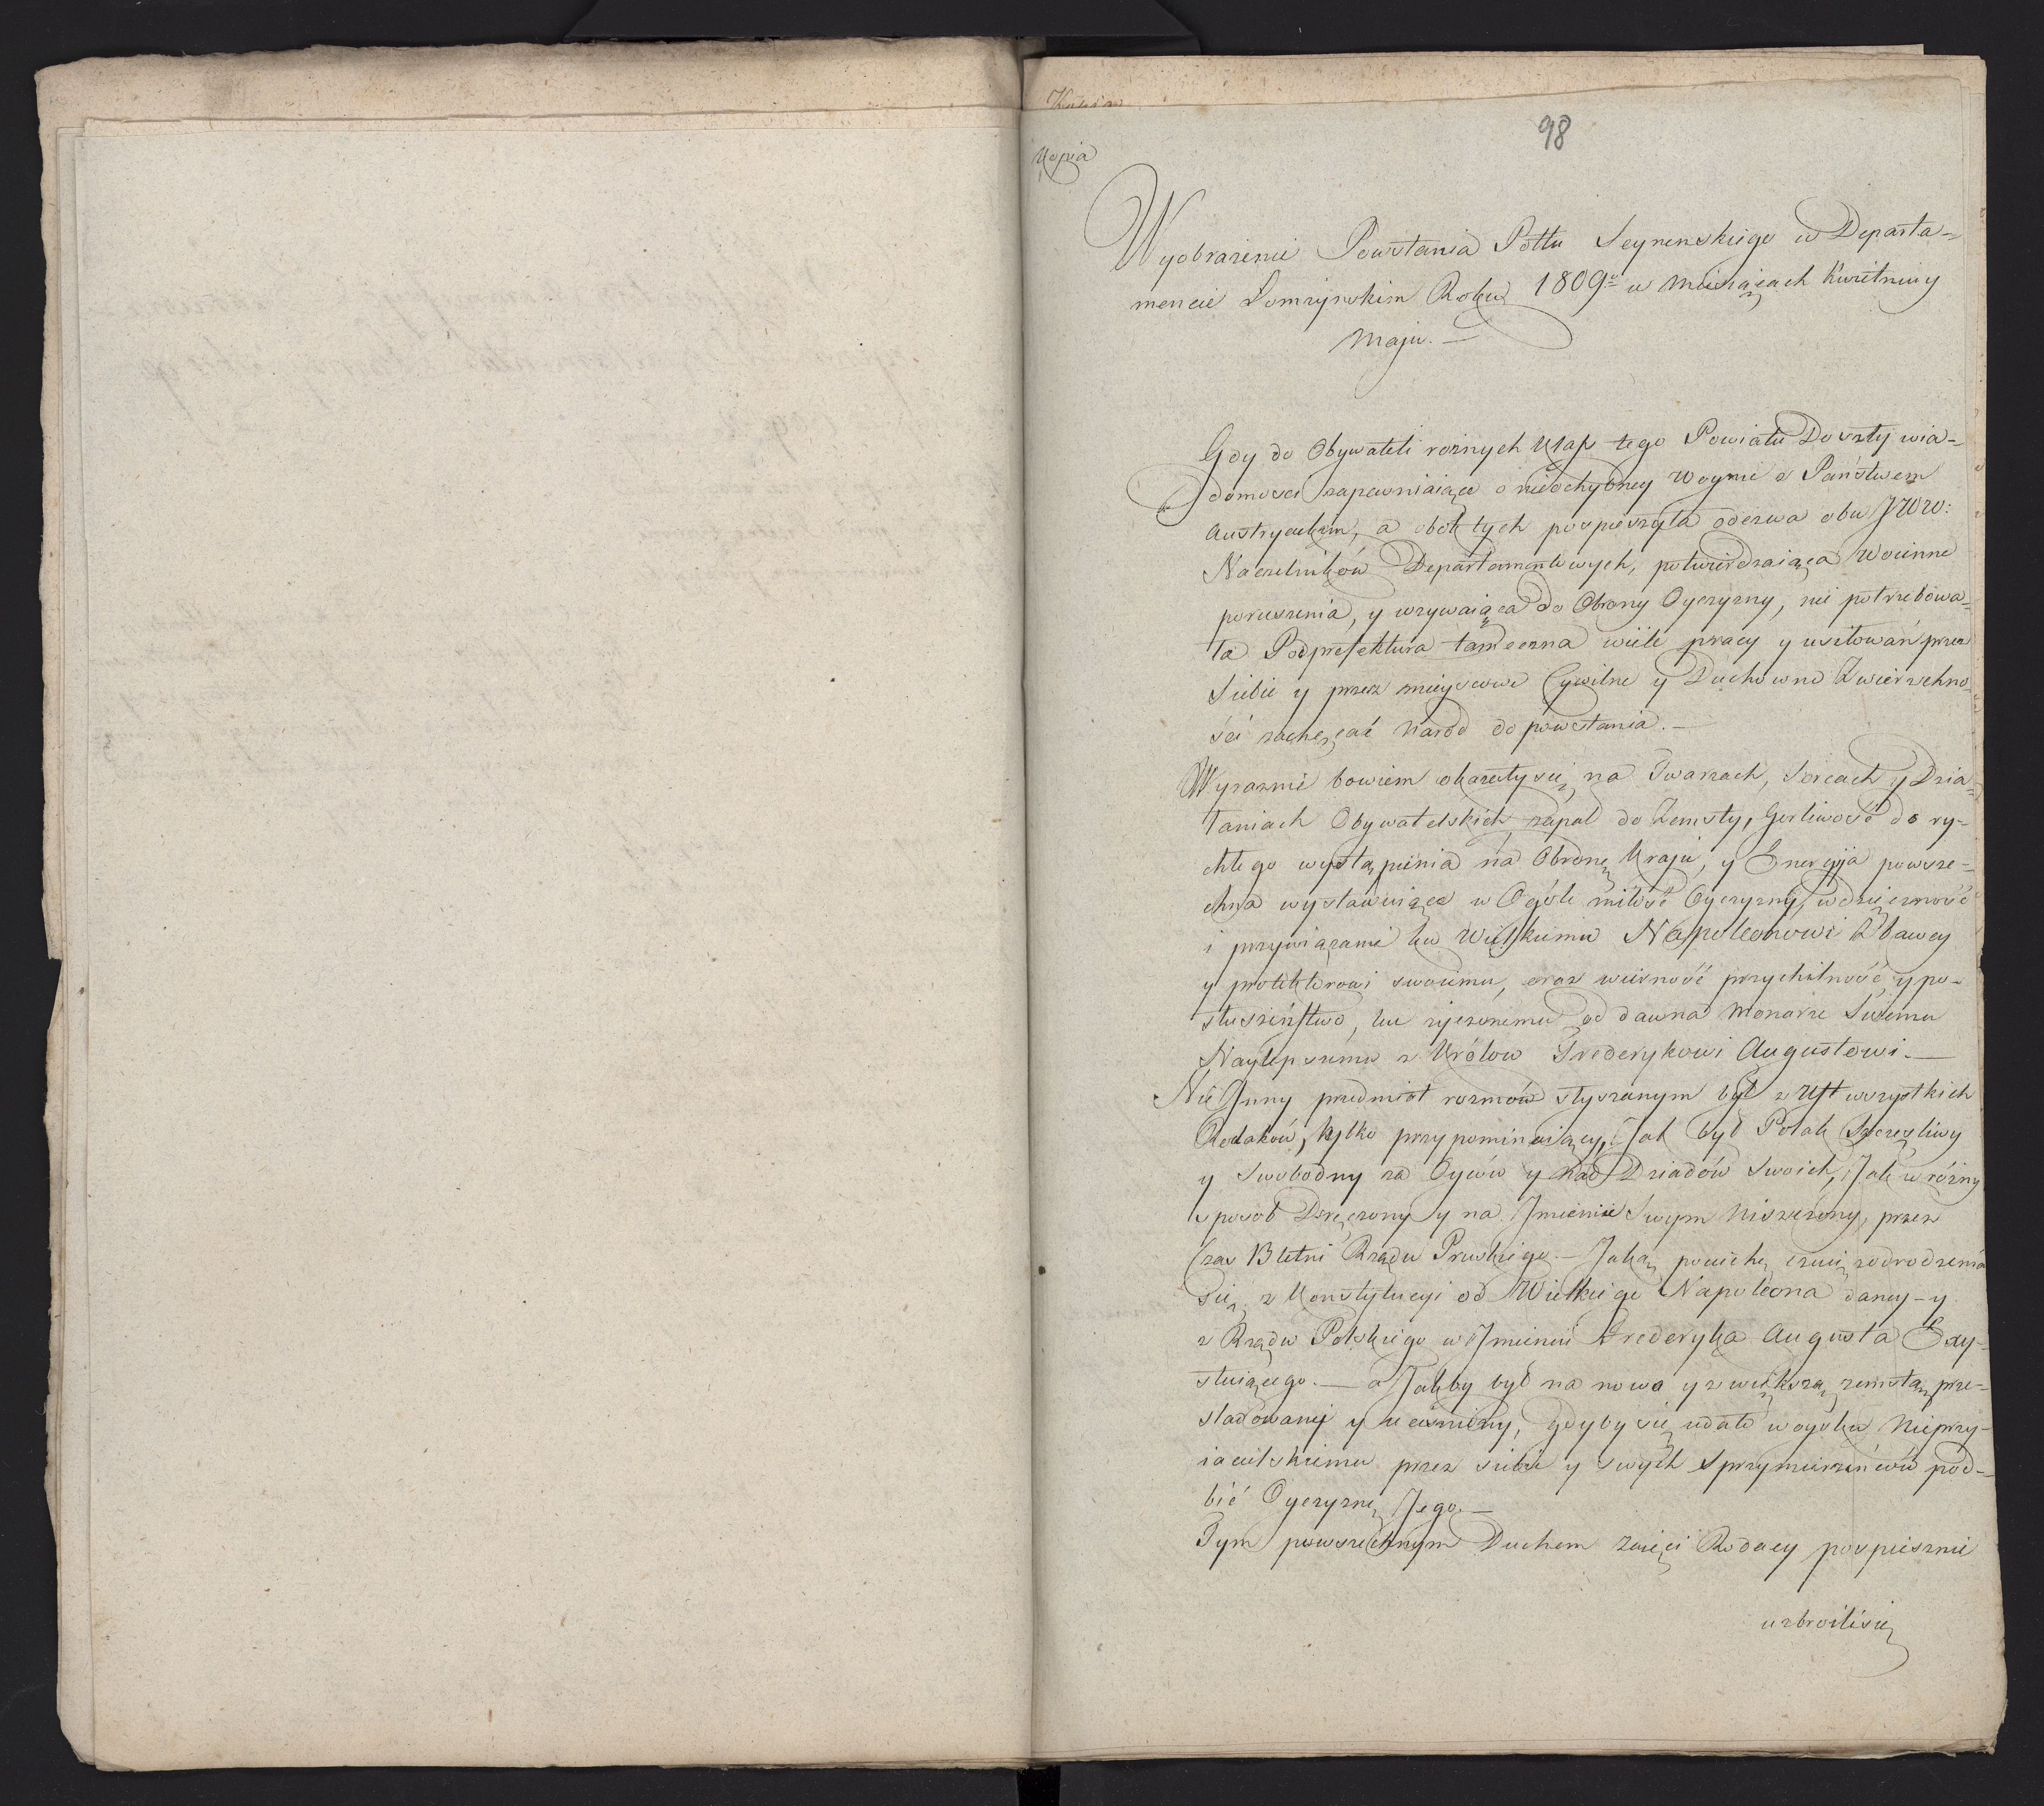 98
Kopia
Wyobrażenie Powstania Pottu Seynenskiego w Departa-
mencie Łomżynskim Roku 1809º w miesiącach Kwietniu y
Maju. —
Gdy do Obywateli rożnych Klass tego Powiatu Doszły wia-
domosci zapewniaiące o nieochybney Woynie z Państwem
Austryackim, a obok tych pospieszyła odezwa obu JWW:
Naczelników Departamentowych, potwierdzaiąca Woienne
poruszenia, y wzywaiąca do Obrony Oyczyzny, nie potrzebowa-
ła Podprefektura tameczna wiele pracy y usiłowań przez
Siebie y przez mieyscowe Cywilne y Duchowne Zwierzchno-
ści zachęcać Naród do powstania. —
Wyraznie bowiem okazały się na Twarzach, Sercach y Dzia-
łaniach Obywatelskich zapał do Zemsty, Gorliwość do ry-
chłego wystąpienia na Obronę Kraju, y Energija powsze-
chna wystawuiące w Ogóle miłość Oyczyzny, wdzięczność
i przywiązanie ku Wielkiemu Napoleonowi Zbawcy
y protektorowi swoiemu, oraz wierność przychilność, y po-
słuszeństwo, ku życzonemu od dawna Monarsze Swemu
Naylepszemu z Królow Frederykowi Augustowi. —
Nie Inny przedmiot rozmów słyszanym był z Ust wszystkich
Rodaków, tylko przypominaiący, Jak był Polak Szczęśliwy
y Swobodny za Oyców y Nad Dziadów Swoich, Jak w różny
sposob Dręczony y na Imieniu Swym Niszczony, przez
Czas 13 letni Rządu Pruskiego. — Jaką pociechę czuie z odrodzenia
się, z Konstytucyi od Wielkiego Napoleona daney - y
z Rządu Polskiego w Imieniu Frederyka Augusta Exy-
stuiącego. — a Jakby był na nowo y z większą zemstą prze-
sladowany y uciśniony, gdyby się udało woysku Nieprzy-
iacielskiemu przez siebie y swych Sprzymierzeńców pod-
bić Oyczyznę Jego. —
Tym powszechnym Duchem zaięci Rodacy pospiesznie
uzbroili się